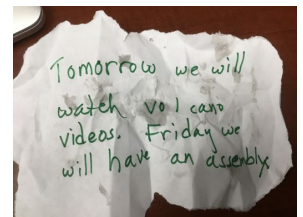 Tomorrow we will
watch volcano
videos. Friday we
will have an assembly.